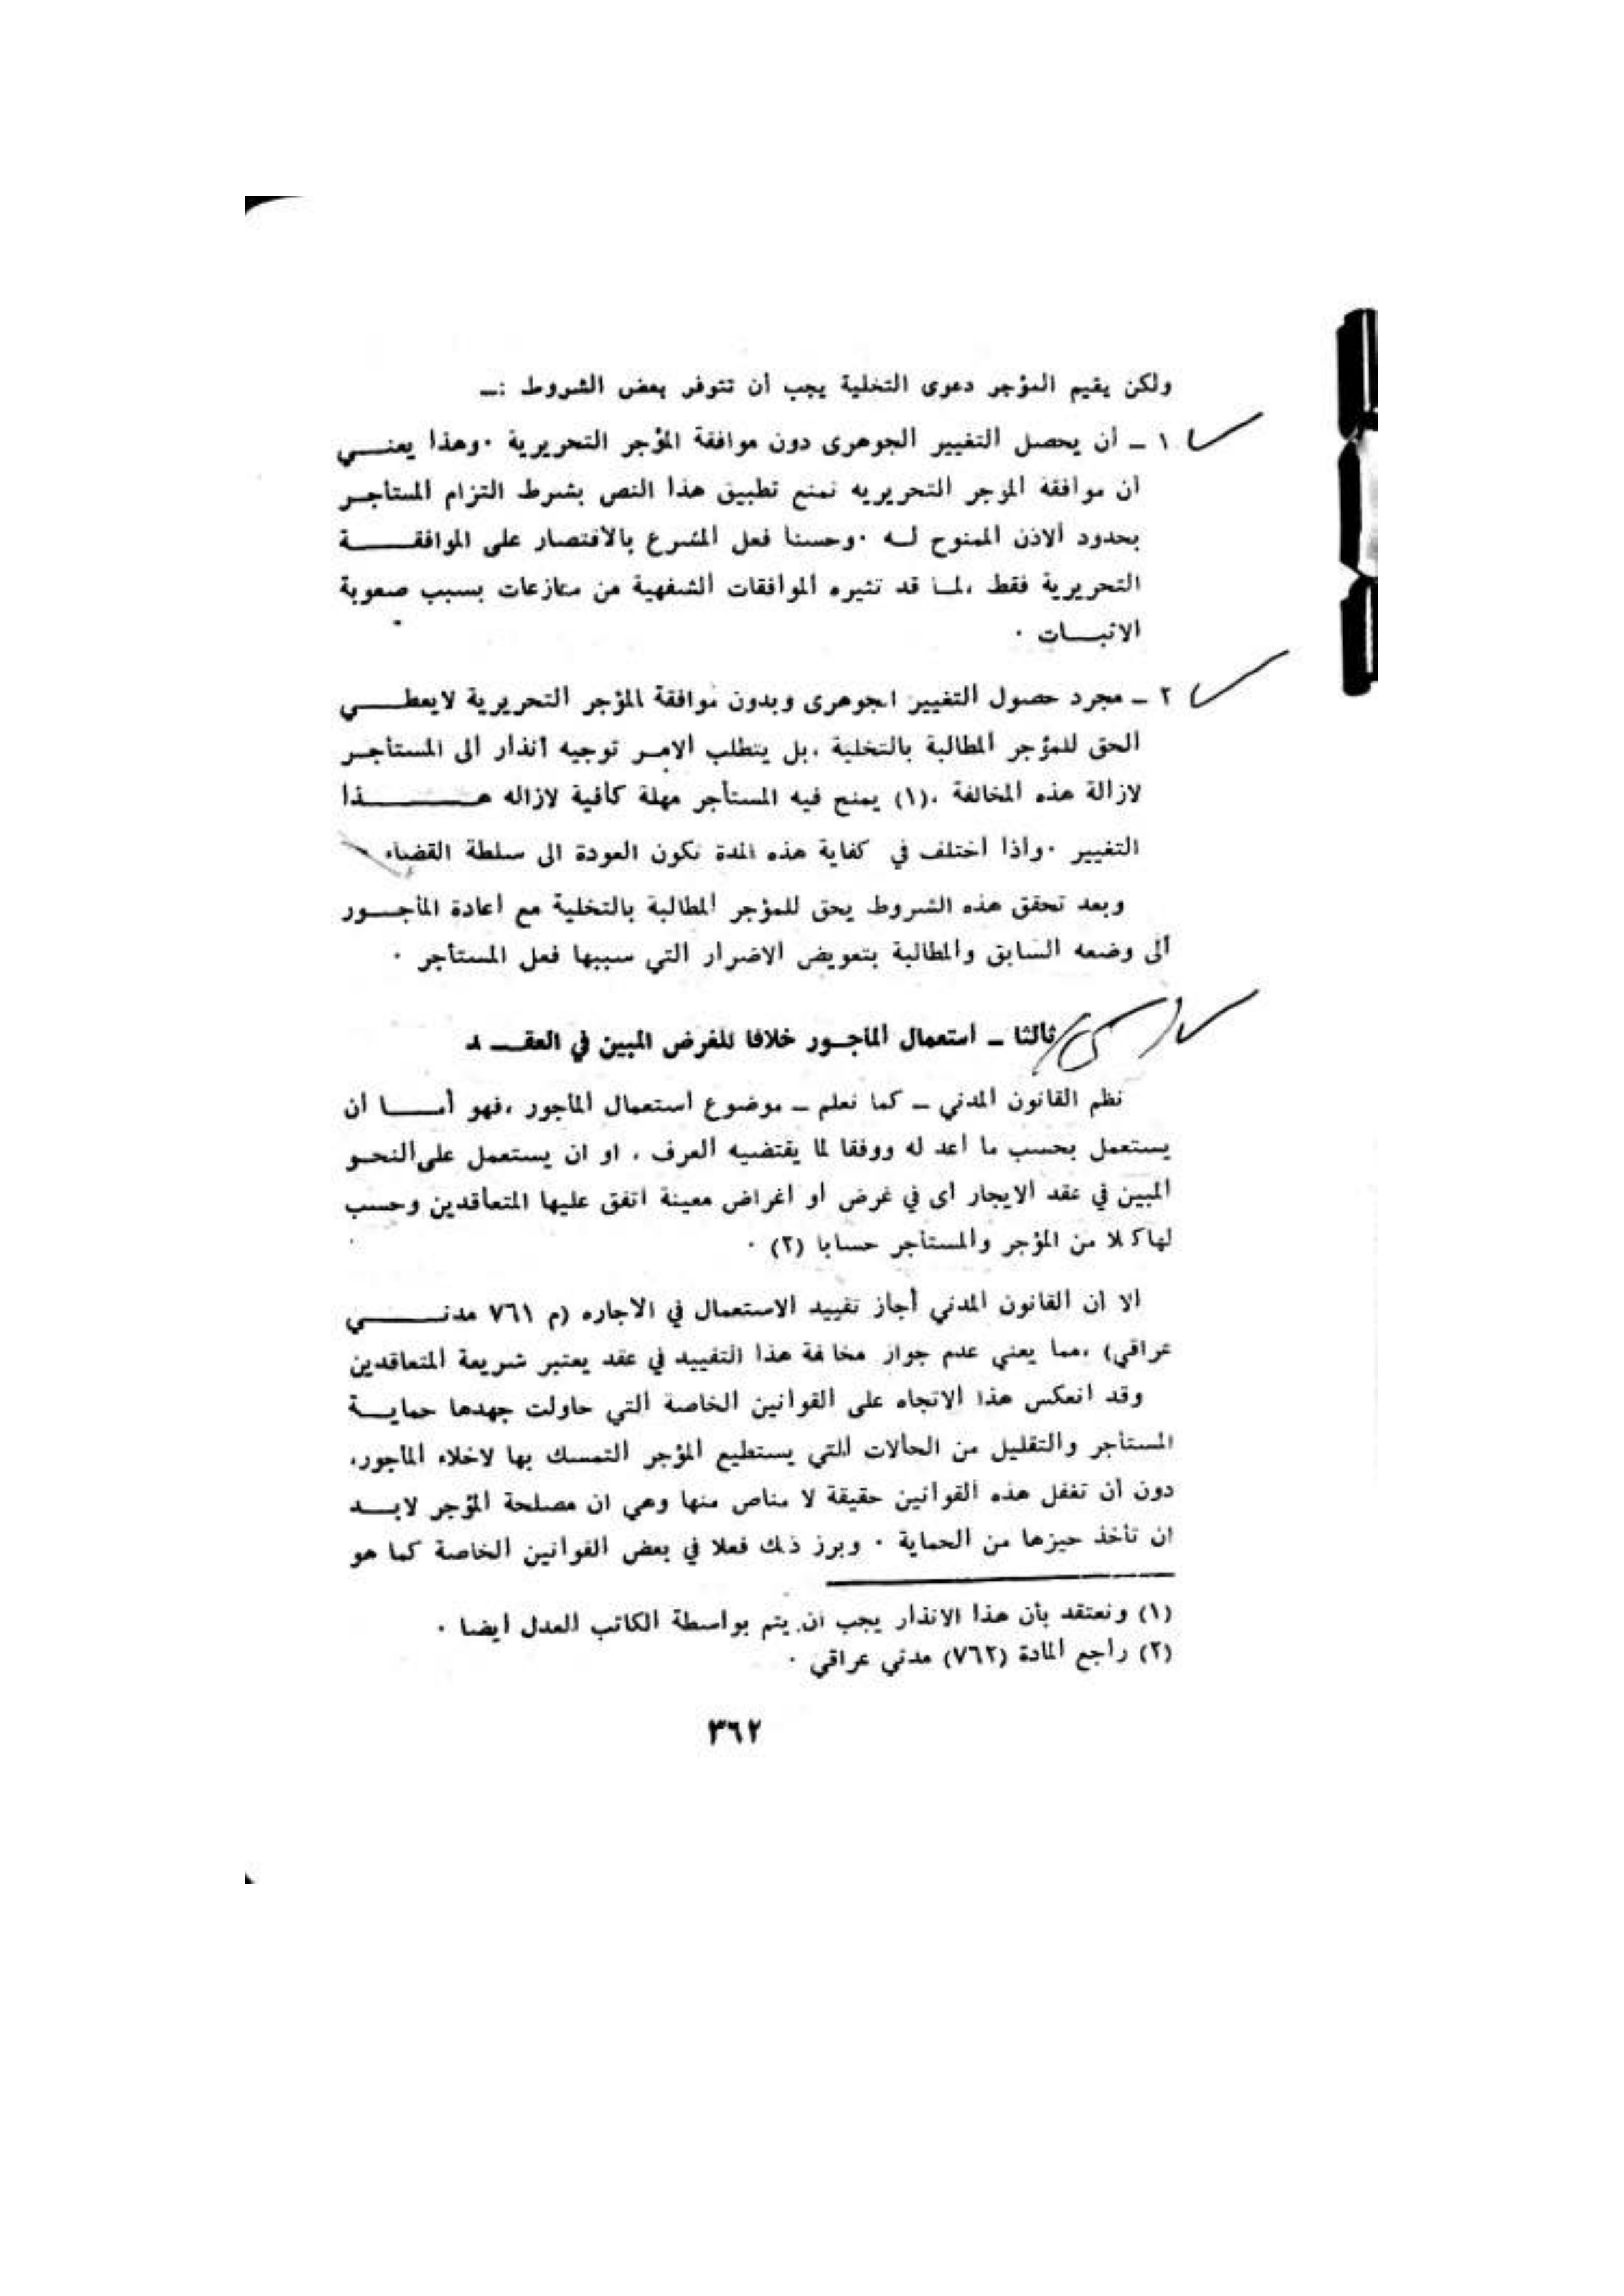 ولكن يقيم المؤجر دعوى التخلية يجب أن تتوفر بعض الشروط :ـ
١ ـ أن يحصل التغيير الجوهرى دون موافقة المؤجر التحريرية ٠وهذا يعنـــي
ان موافقة المؤجر التحريريه تمنع تطبيق هذا النص بشرط التزام المستأجـر
بحدود الاذن الممنوح لـه ٠وحسنا فعل المشرع بالاقتصار على الموافقــــة
التحريرية فقط ،لمـا قد تثيره الموافقات الشفهية من منازعات بسبب صعوبة
الاثبــات ٠
٢ ـ مجرد حصول التغيير الجوهرى وبدون موافقة المؤجر التحريرية لايعطـــي
الحق للمؤجر المطالبة بالتخلية ،بل يتطلب الامـر توجيه أنذار الى المستأجـر
لازالة هذه المخالفة ،(١) يمنح فيه المستأجر مهلة كافية لازاله هــــــذا
التغيير ٠واذا اختلف في كفاية هذه المدة تكون العودة الى سلطة القضاء ٠
وبعد تحقق هذه الشروط يحق للمؤجر المطالبة بالتخلية مع اعادة المأجــور
ألى وضعه السابق والمطالبة بتعويض الاضرار التي سببها فعل المستأجر ٠
ثالثا ـ استعمال المأجـور خلافا للغرض المبين في العقــد
نظم القانون المدني ـ كما نعلم ـ موضوع استعمال المأجور ،فهو أمـــا ان
يستعمل بحسب ما اعد له ووفقا لما يقتضيه العرف ، او ان يستعمل على النحـو
المبين في عقد الايجار اى في غرض او اغراض معينة اتفق عليها المتعاقدين وحسب
لهاكلا من المؤجر والمستأجر حسابا (٢) ٠
الا ان القانون المدني أجاز تقييد الاستعمال في الاجاره (م ٧٦١ مدنــــي
عراقي) ،مما يعني عدم جواز مخالفة هذا التقييد في عقد يعتبر شريعة المتعاقدين
وقد انعكس هذا الاتجاه على القوانين الخاصة التي حاولت جهدها حمايــة
المستأجر والتقليل من الحالات التي يستطيع المؤجر التمسك بها لاخلاء المأجور،
دون أن تغفل هذه القوانين حقيقة لا مناص منها وهي ان مصلحة المؤجر لابــد
ان تأخذ حيزها من الحماية ٠ وبرز ذلك فعلا في بعض القوانين الخاصة كما هو
(١) ونعتقد بأن هذا الانذار يجب ان يتم بواسطة الكاتب العدل ايضا ٠
(٢) راجع المادة (٧٦٢) مدني عراقي ٠
٣٦٢